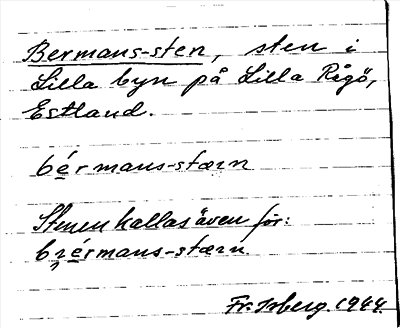 Bermans-sten, sten i
Lilla byn på Lilla Rågö,
Estland.
bérmans-stærn
Stenen kallas även för:
bɿérmans-stærn.
Fr. Isberg. 1944.